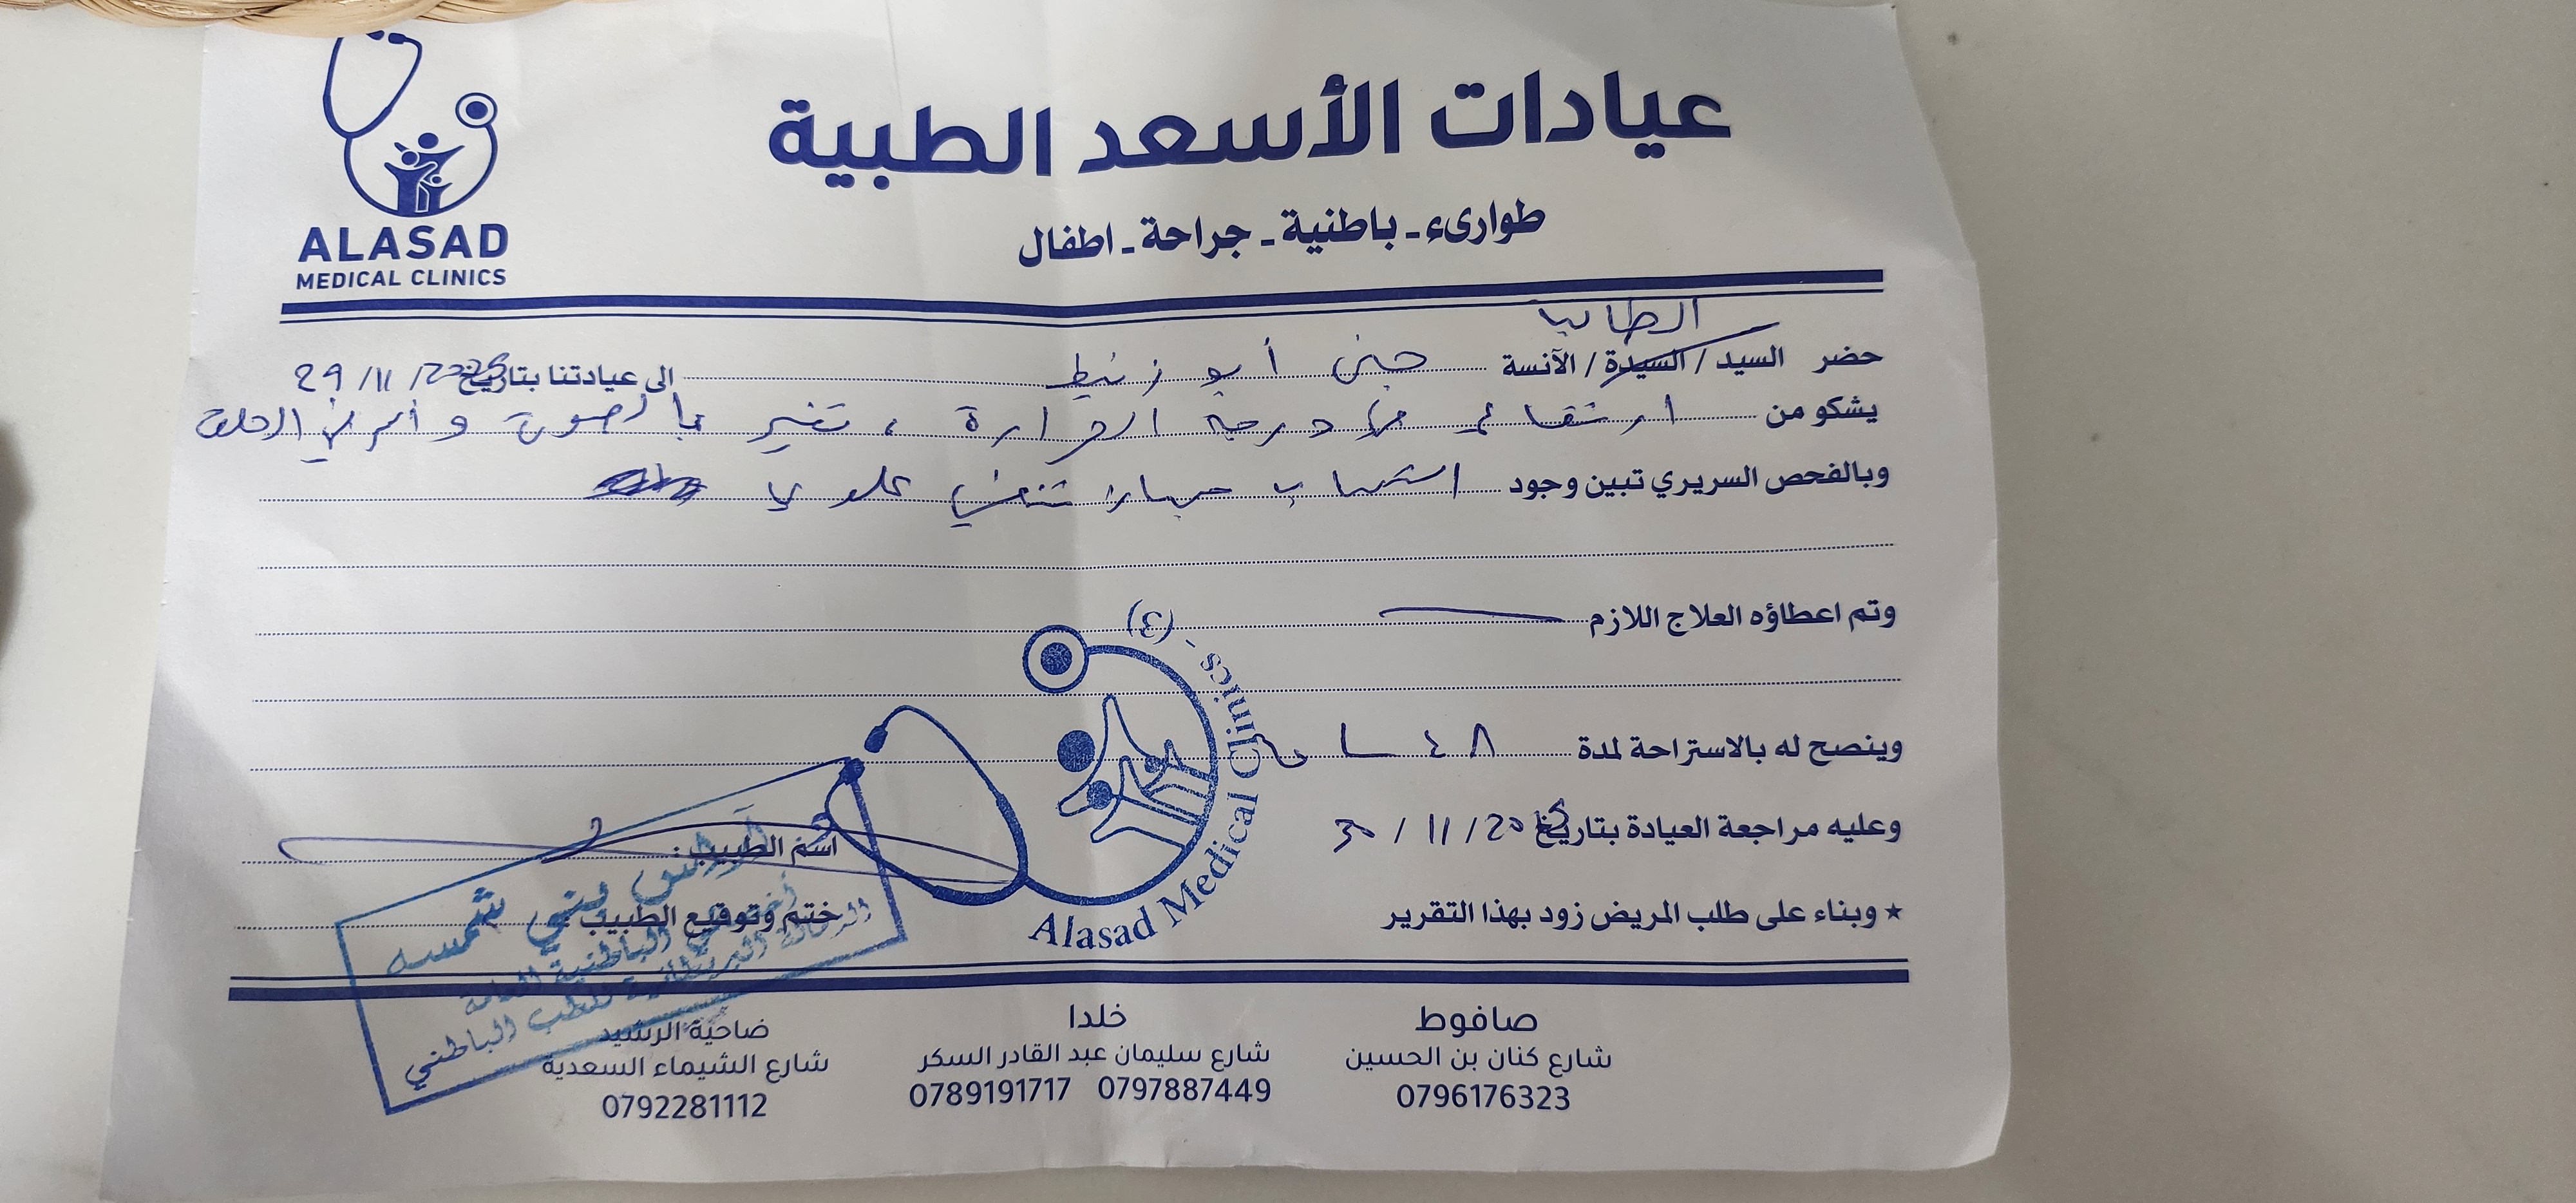 عيادات الأسعد الطبية
طوارىء - باطنية - جراحة - اطفال
ALASAD
MEDICAL CLINICS
الطالبة
حضر السيد / السيدة / الآنسة جنى أبو زنيط الى عيادتنا بتاريخ 29/11/2025
يشكو من ارتفاع في درجة الحرارة ، تغير بالصوت و ألم في الحلق
وبالفحص السريري تبين وجود التهاب جهاز تنفسي علوي
وتم اعطاؤه العلاج اللازم
وينصح له بالاستراحة لمدة ٤٨ ساعة
وعليه مراجعة العيادة بتاريخ 30/11/2025
اسم الطبيب :
* وبناء على طلب المريض زود بهذا التقرير
ختم وتوقيع الطبيب :
Alasad Medical Clinics - (٤)
بني شمسه
الباطنية العامة
للطب الباطني
صافوط
شارع كنان بن الحسين
0796176323
خلدا
شارع سليمان عبد القادر السكر
0789191717 0797887449
ضاحية الرشيد
شارع الشيماء السعدية
0792281112